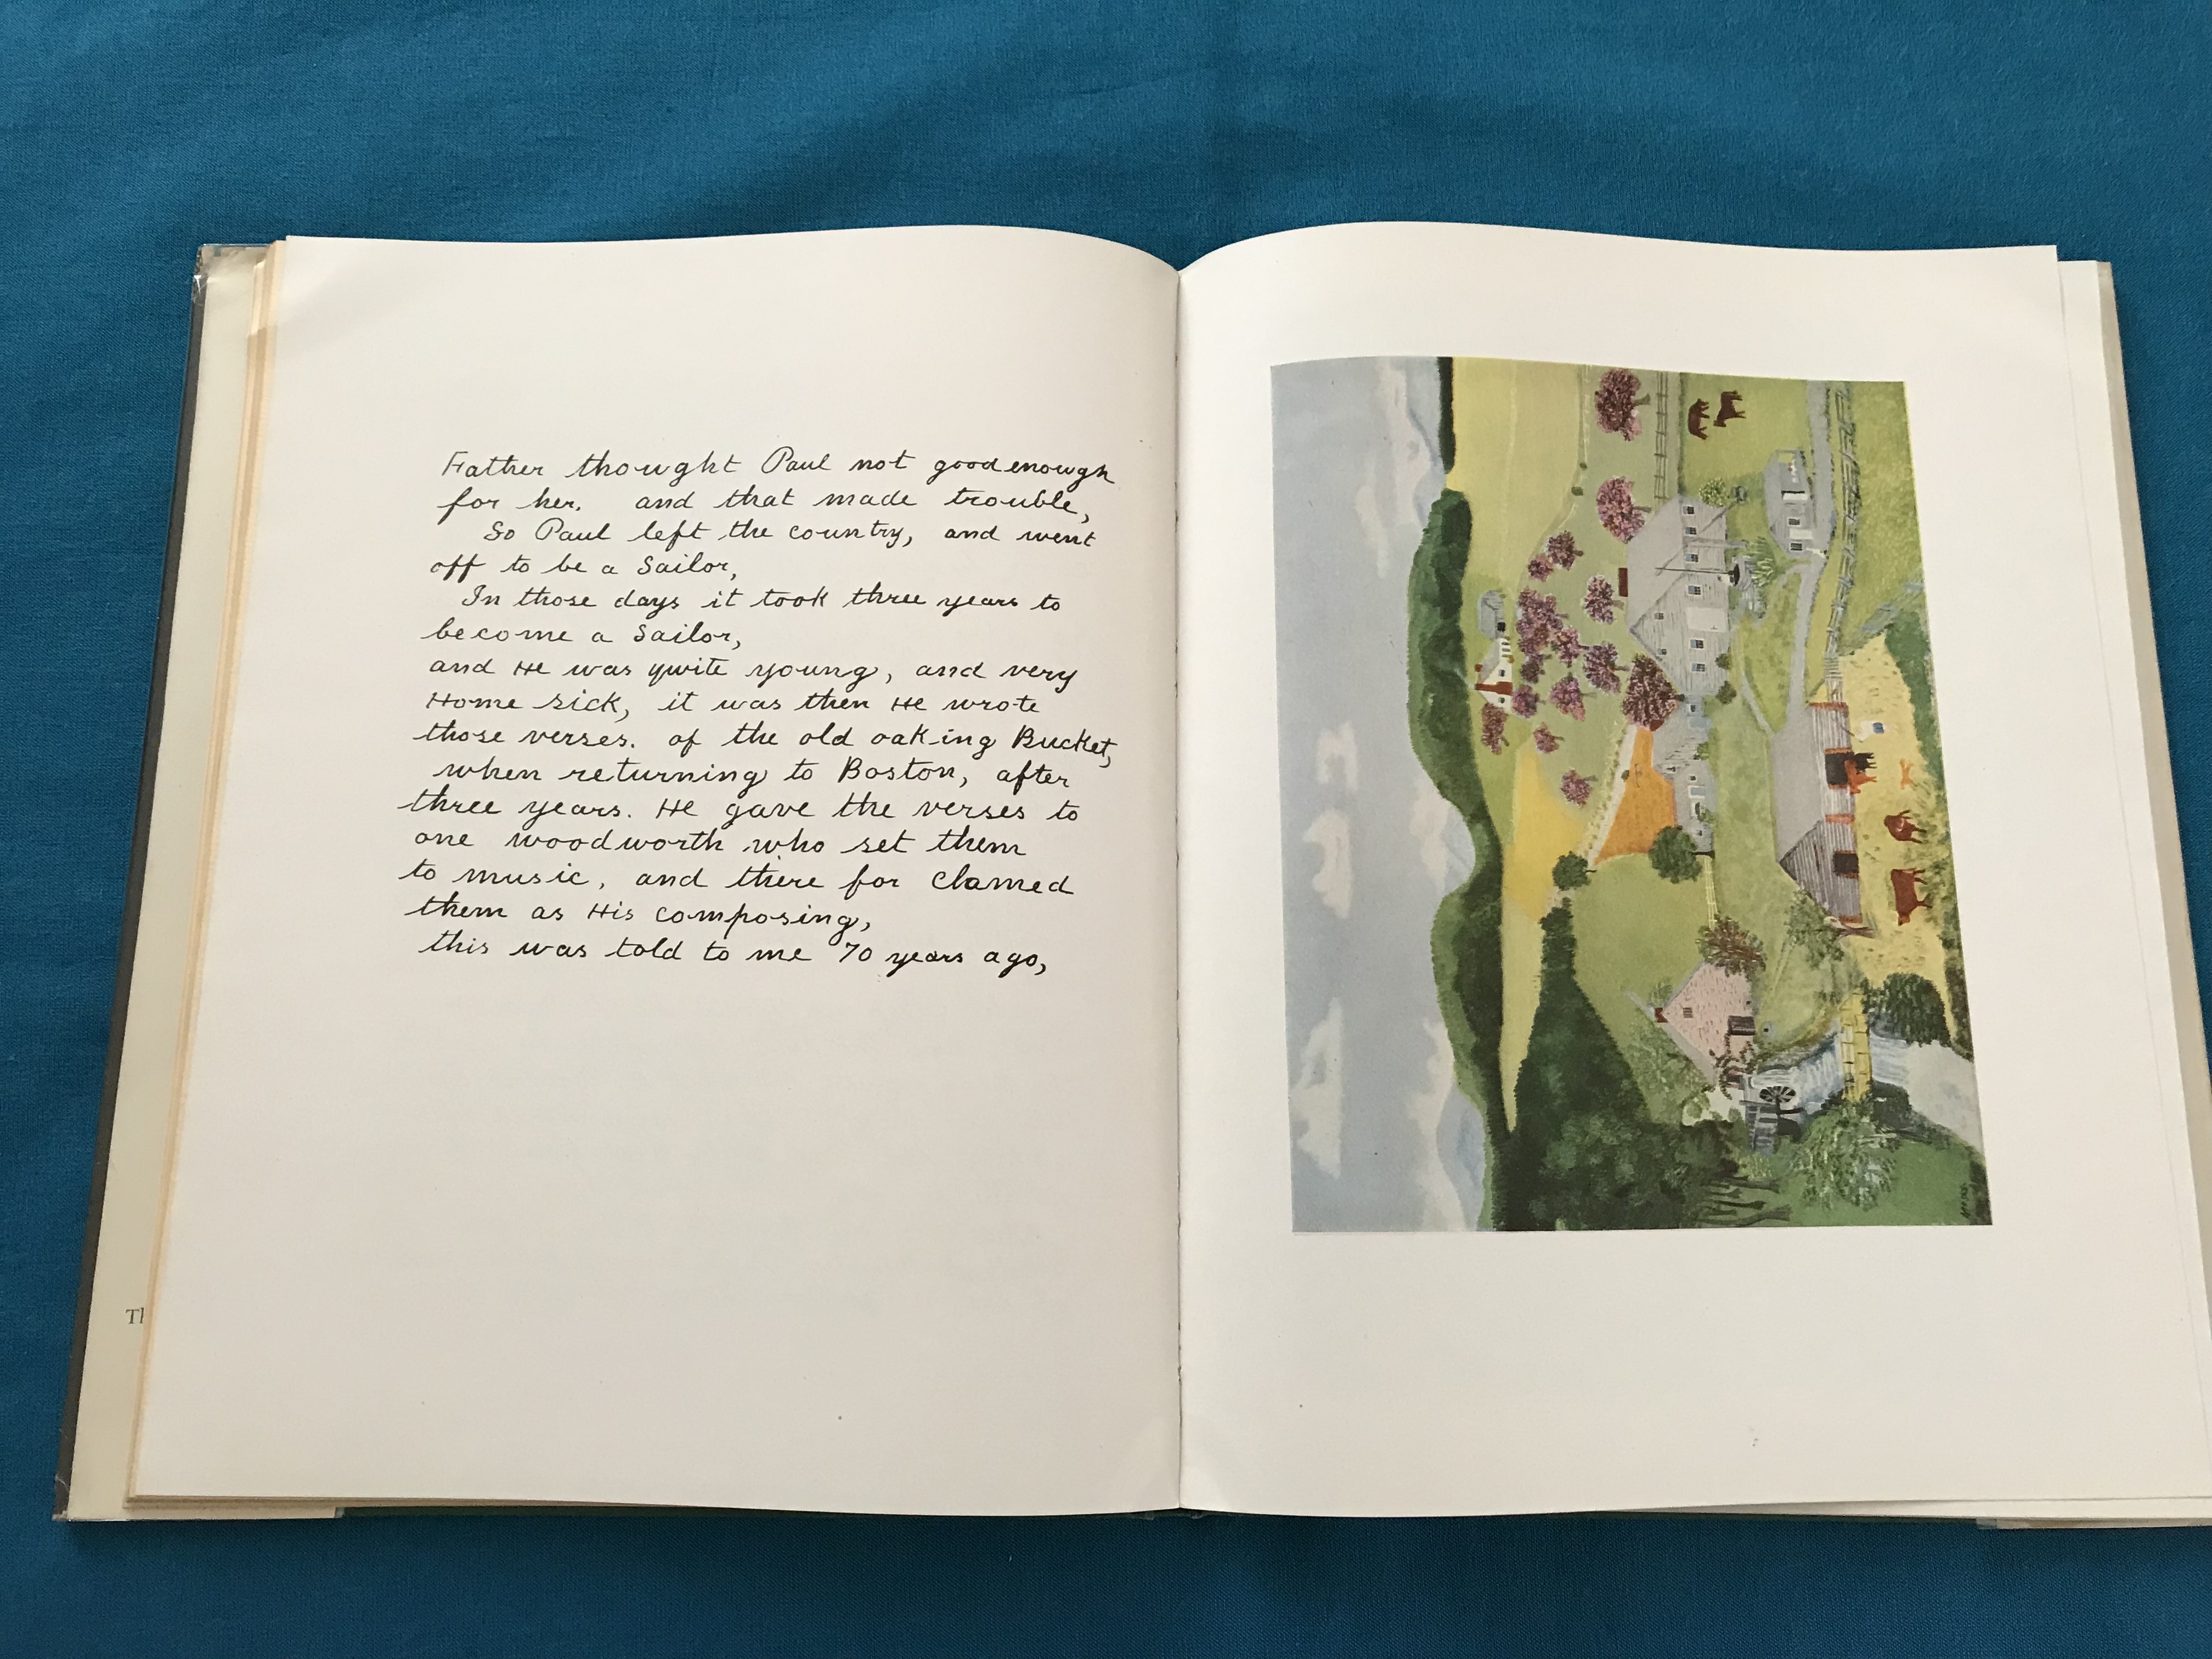 Father thought Paul not good enough
for her. and that made trouble,
So Paul left the country, and went
off to be a Sailor,
In those days it took three years to
become a Sailor,
and He was qwite young, and very
Home sick, it was then He wrote
those verses. of the old oaking Bucket,
when returning to Boston, after
three years. He gave the verses to
one woodworth who set them
to music, and there for Clamed
them as His composing,
this was told to me 70 years ago,